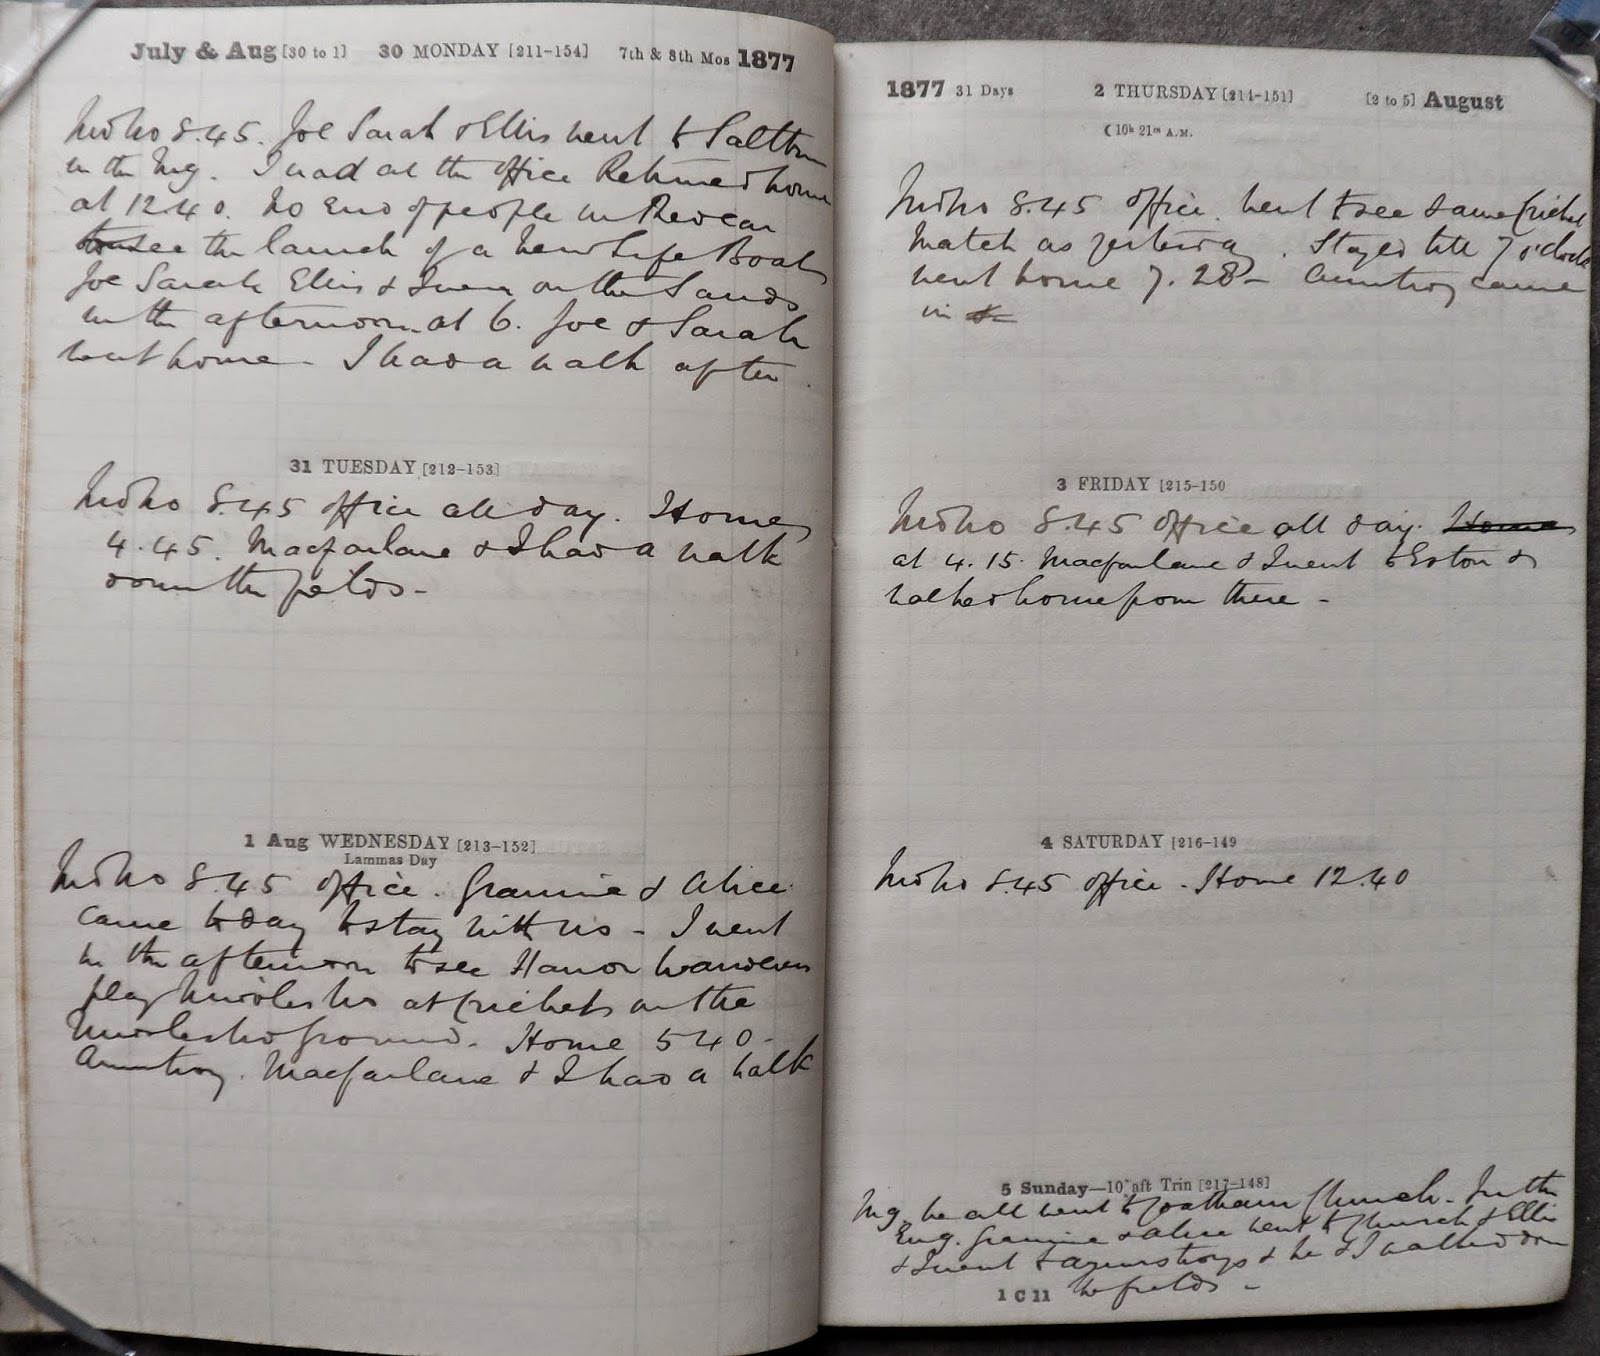 July & Aug [30 to 1] 30 MONDAY [211-154] 7th & 8th Mos 1877
Mdbro 8.45. Joe Sarah & Ellis went to Saltbn
in the Mg. I was at the office Returned home
at 12.40. No End of people in Redcar
to see the launch of a new Life Boat
Joe Sarah Ellis & I were on the Sands
in the afternoon. at 6. Joe & Sarah
went home - I had a walk after.
31 TUESDAY [212-153]
Mdbro 8.45 office all day. Home
4.45. Macfarlane & I had a walk
down the fields -
1 Aug WEDNESDAY [213-152]
Lammas Day
Mdbro 8.45 office. Grannie & Alice
came to day to stay with us - I went
in the afternoon to see Hanor Wanderers
play Middlesbro at Cricket on the
Middlesbro ground. Home 5 40 -
Armstrong. Macfarlane & I had a walk
1877 31 Days 2 THURSDAY [214-151] [2 to 5] August
☾ 10h 21m A.M.
Mdbro 8.45 office. Went to see same Cricket
Match as yesterday. Stayed till 7 o'clock
went home 7.28 - Armstrong came
in
3 FRIDAY [215-150
Mdbro 8.45 office all day. Home
at 4.15. Macfarlane & I went to Eston &
walked home from there -
4 SATURDAY [216-149
Mdbro 8.45 office. Home 12.40
5 Sunday—10 aft Trin [217-148]
Mg. We all went to Coatham Church - In the
Eng. Grannie & Alice went to Church & Ellis
& I went to Armstrongs & he & I walked down
the fields -
1 C 11